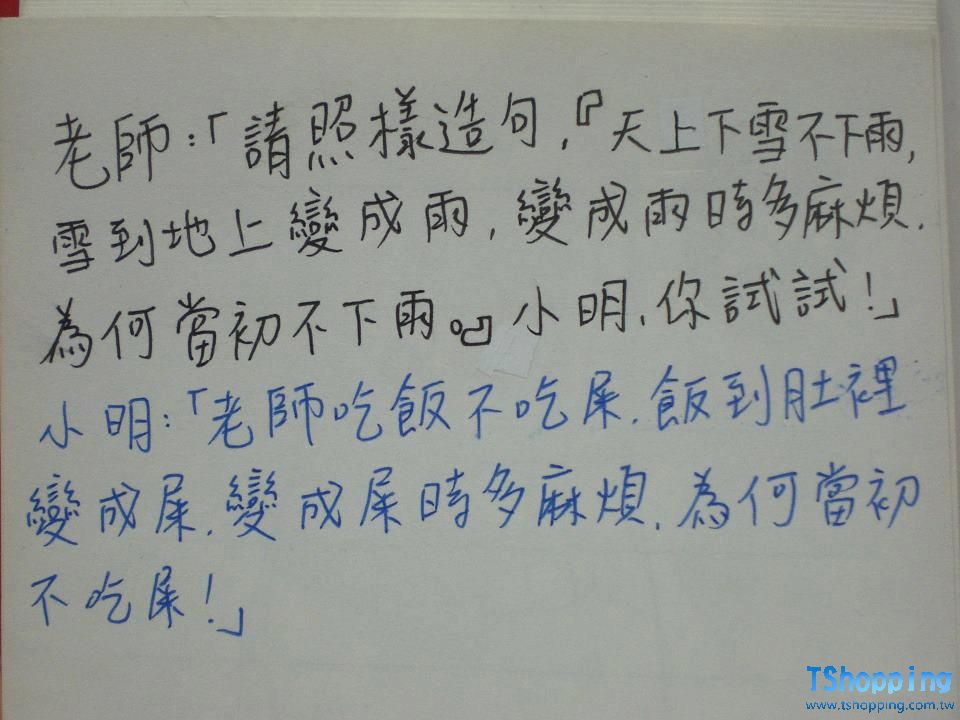 老師:「請照樣造句,『天上下雪不下雨,
雪到地上變成雨,變成雨時多麻煩,
為何當初不下雨。』小明,你試試!」
小明:「老師吃飯不吃屎,飯到肚裡
變成屎,變成屎時多麻煩,為何當初
不吃屎!」
TShopping
www.tshopping.com.tw